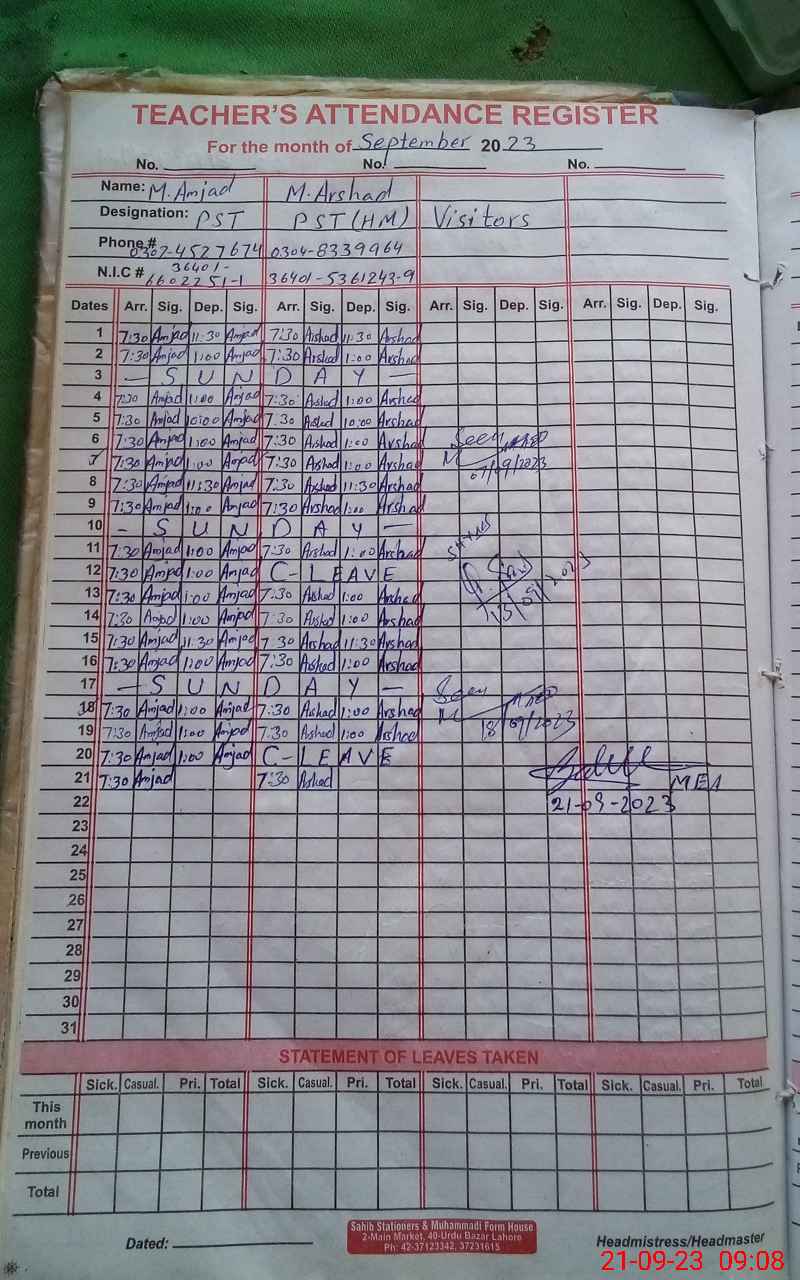 TEACHER'S ATTENDANCE REGISTER
For the month of September 20 23
No. No. No.
Name: M. Amjad M. Arshad
Designation: PST PST (HM) Visitors
Phone # 0302-4527674 0304-8339964
N.I.C # 36401-6602251-1 36401-5361243-9
Dates Arr. Sig. Dep. Sig. Arr. Sig. Dep. Sig. Arr. Sig. Dep. Sig. Arr. Sig. Dep. Sig.
1 7:30 Amjad 11:30 Amjad 7:30 Arshad 11:30 Arshad
2 7:30 Amjad 1:00 Amjad 7:30 Arshad 1:00 Arshad
3 — S U N D A Y —
4 7:30 Amjad 1:00 Amjad 7:30 Arshad 1:00 Arshad
5 7:30 Amjad 10:00 Amjad 7:30 Arshad 10:00 Arshad
6 7:30 Amjad 1:00 Amjad 7:30 Arshad 1:00 Arshad Seen
7 7:30 Amjad 1:00 Amjad 7:30 Arshad 1:00 Arshad 07/09/2023
8 7:30 Amjad 11:30 Amjad 7:30 Arshad 11:30 Arshad
9 7:30 Amjad 1:00 Amjad 7:30 Arshad 1:00 Arshad
10 — S U N D A Y —
11 7:30 Amjad 1:00 Amjad 7:30 Arshad 1:00 Arshad
12 7:30 Amjad 1:00 Amjad C-LEAVE
13 7:30 Amjad 1:00 Amjad 7:30 Arshad 1:00 Arshad 13/09/2023
14 7:30 Amjad 1:00 Amjad 7:30 Arshad 1:00 Arshad
15 7:30 Amjad 11:30 Amjad 7:30 Arshad 11:30 Arshad
16 7:30 Amjad 1:00 Amjad 7:30 Arshad 1:00 Arshad
17 — S U N D A Y — Seen
18 7:30 Amjad 1:00 Amjad 7:30 Arshad 1:00 Arshad 18/09/2023
19 7:30 Amjad 1:00 Amjad 7:30 Arshad 1:00 Arshad
20 7:30 Amjad 1:00 Amjad C-LEAVE
21 7:30 Amjad 7:30 Arshad MEA
22 21-09-2023
23
24
25
26
27
28
29
30
31
STATEMENT OF LEAVES TAKEN
Sick. Casual. Pri. Total Sick. Casual. Pri. Total Sick. Casual. Pri. Total Sick. Casual. Pri. Total
This month
Previous
Total
Dated: Headmistress/Headmaster
Sahib Stationers & Muhammadi Form House
2-Main Market, 40-Urdu Bazar Lahore
Ph: 42-37123342, 37231615
21-09-23 09:08